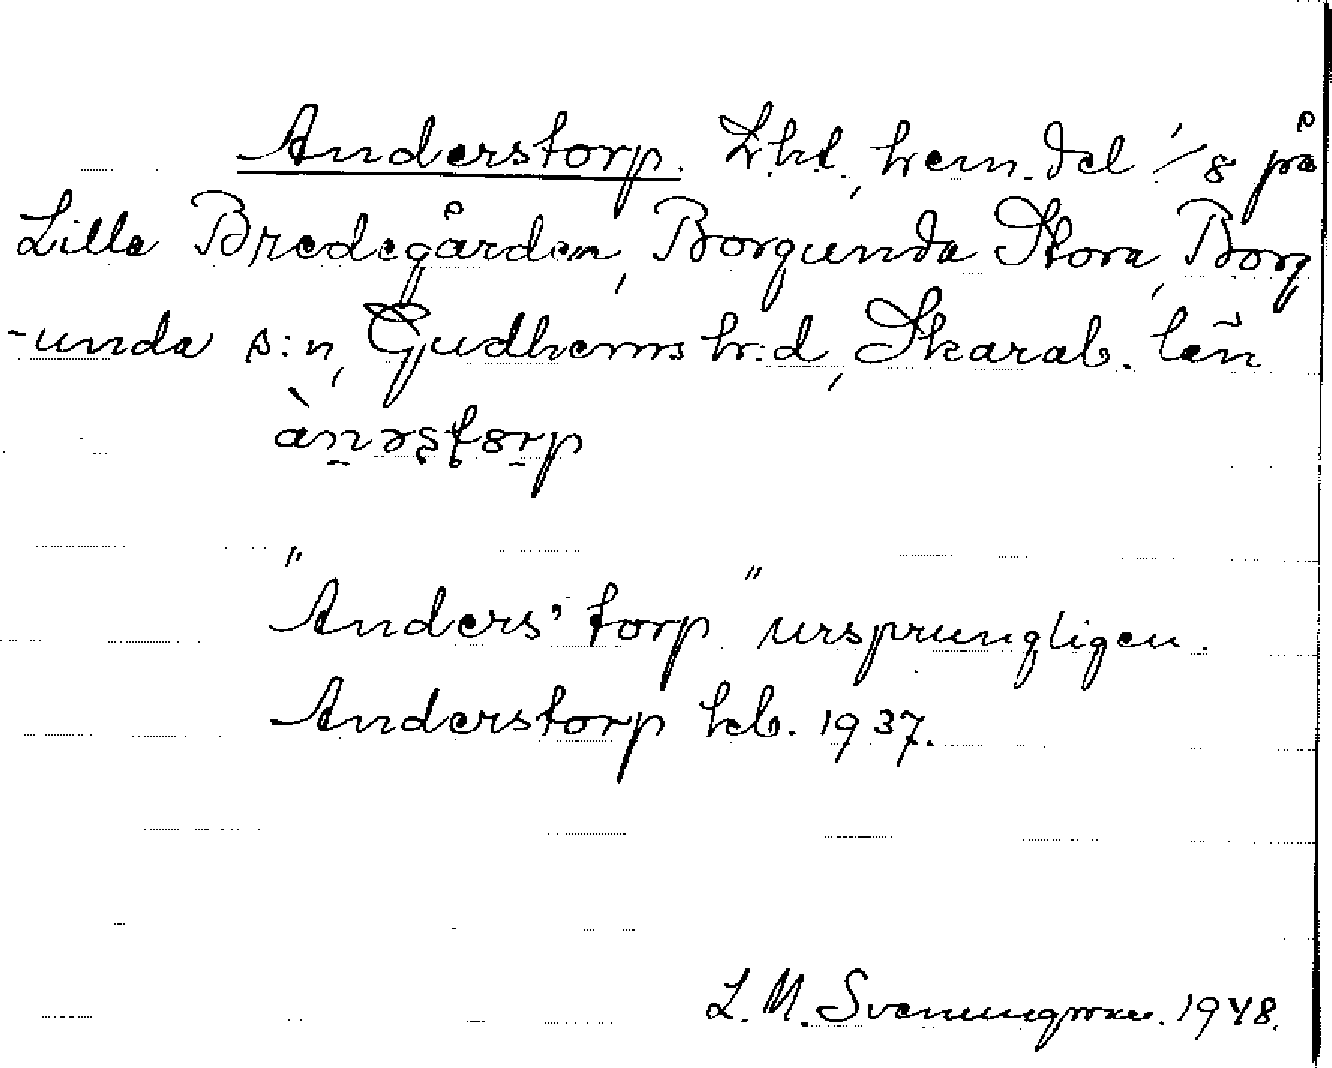 Anderstorp. Lht., hem.del 1/8 på
Lilla Bredegården, Borgunda Stora, Borg
-unda s:n, Gudhems h:d, Skarab. län
ànəstorp
"Anders' torp" ursprungligen.
Anderstorp hcb. 1937.
L. M. Svenungsson. 1948.